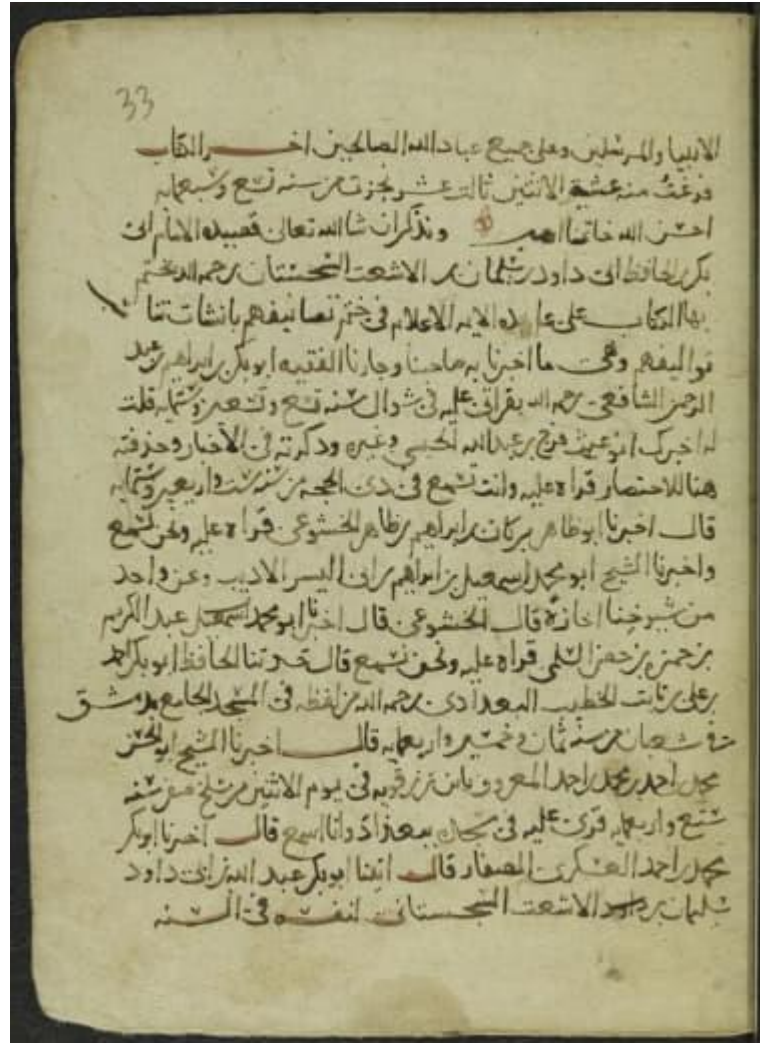 33
الانبيا والمرسلين وعلى جميع عباد الله الصالحين اخر الكتاب
فرغت منه عشية الاثنين ثالث عشر نجزت من سنه تسع وسبعمايه
احسن الله خاتمتها ونذكر ان شا الله تعالى قصيده الامام ابى
بكر الحافظ ابى داود سليمان بن الاشعث السجستانى رحمه الله نختم
بها الكتاب على عاده الايمه الاعلام فى ختم تصانيفهم بانشادات
تواليفهم وهى ما اخبرنا به صاحبنا وجارنا الفقيه ابو بكر بن ابراهيم بن عبد
الرحمن الشافعى رحمه الله بقراتى عليه فى شوال سنه تسع وتسعين وستمايه قلت
له اخبرك ابو غيث فرج بن عبد الله الحبشي وغيره وذكرته فى الاخبار وحذفته
هنا للاختصار قراة عليه وانت تسمع فى ذى الحجه من سنه ست واربعين وستمايه
قال اخبرنا ابو طاهر بركات بن ابراهيم بن طاهر الخشوعى قراة عليه ونحن نسمع
واخبرنا الشيخ ابو محمد اسمعيل بن ابراهيم بن ابى اليسر الاديب وغير واحد
من شيوخنا اجازة قال الخشوعى قال اخبرنا ابو محمد عبد الكريم
بن حمزه بن خضر السلمى قراة عليه ونحن نسمع قال حدثنا الحافظ ابو بكر احمد
بن على بن ثابت الخطيب البغدادى رحمه الله من لفظه فى المسجد الجامع بدمشق
فى شعبان من سنه ثمان وخمسين واربعمايه قال اخبرنا الشيخ ابو الحسن
محمد بن احمد بن محمد بن احمد المعروف بابن رزقويه فى يوم الاثنين من سلخ صفر سنه
سبع واربعمايه قرى عليه فى ببغداذ وانا اسمع قال اخبرنا ابو بكر
محمد بن احمد العسكرى الصفار قال ابو بكر عبد الله بن ابى داود
سليمان بن الاشعث السجستانى لنفسه فى السنه